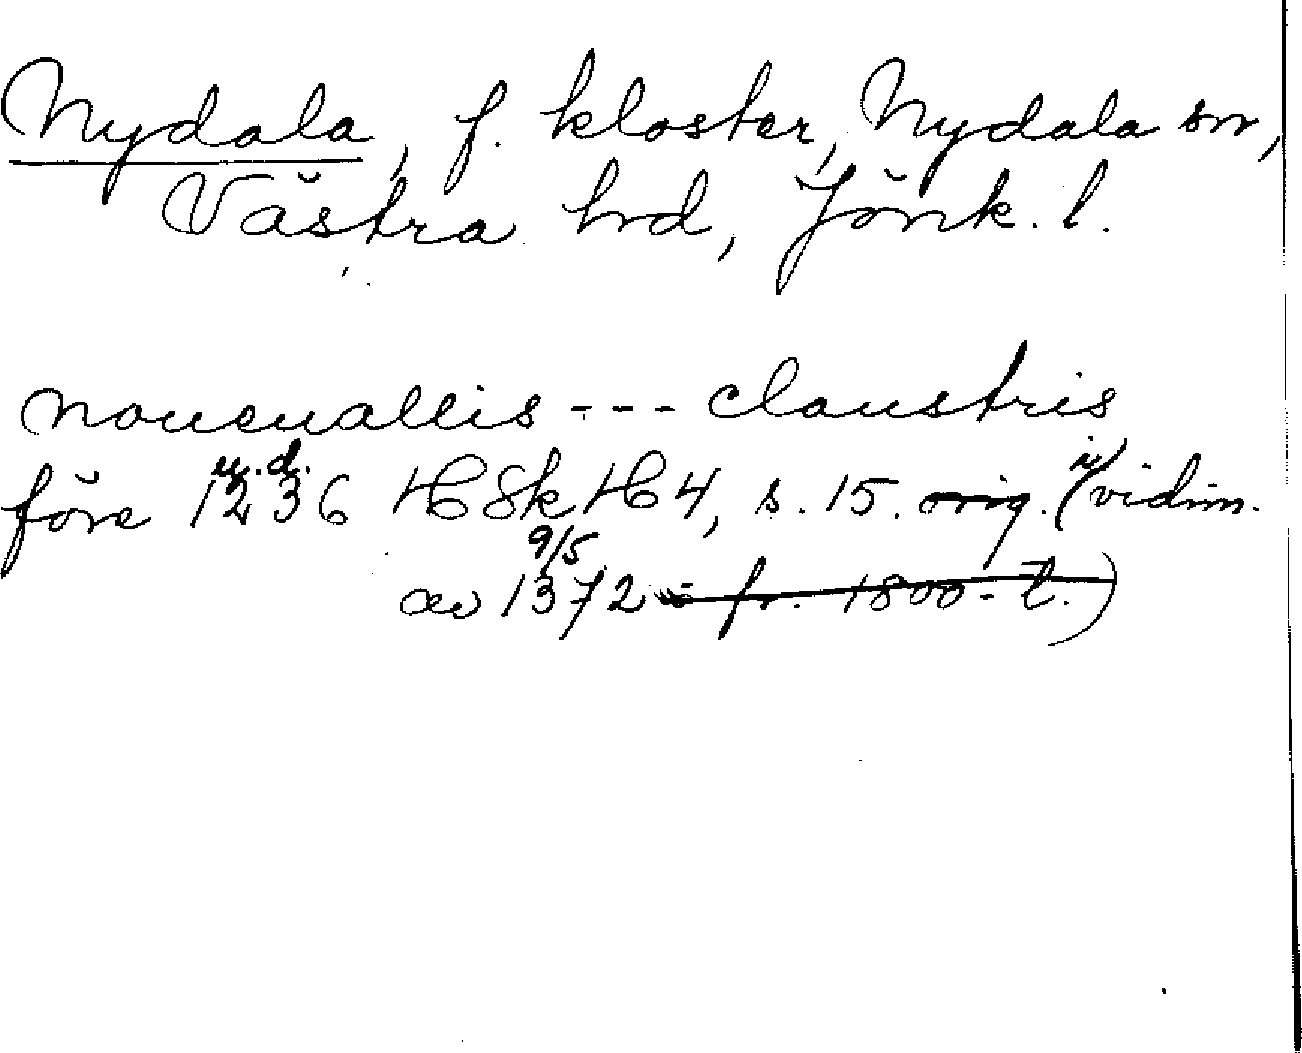 Nydala, f. kloster, Nydala sn,
Västra hd, Jönk. l.
nouenuallis --- claustris
u.d.
före 1236 HSkH4, s. 15. orig. (i vidim.
9/5
av 1372 - fr. 1800-t.)